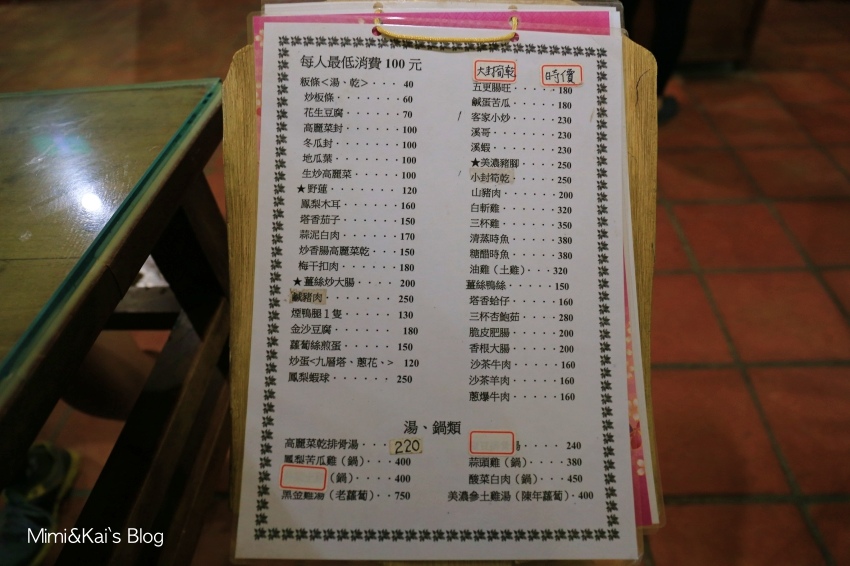 每人最低消費 100 元
粄條<湯、乾>‧‧‧‧ 40
炒粄條‧‧‧‧‧‧‧ 60
花生豆腐‧‧‧‧‧‧ 70
高麗菜封‧‧‧‧‧‧ 100
冬瓜封‧‧‧‧‧‧‧ 100
地瓜葉‧‧‧‧‧‧‧ 100
生炒高麗菜‧‧‧‧‧ 100
★野蓮‧‧‧‧‧‧‧ 120
鳳梨木耳‧‧‧‧‧‧ 160
塔香茄子‧‧‧‧‧‧ 150
蒜泥白肉‧‧‧‧‧‧ 170
炒香腸高麗菜乾‧‧‧ 150
梅干扣肉‧‧‧‧‧‧ 180
★薑絲炒大腸‧‧‧‧ 200
鹹豬肉‧‧‧‧‧‧‧ 250
煙鴨腿1隻‧‧‧‧‧ 130
金沙豆腐‧‧‧‧‧‧ 180
蘿蔔絲煎蛋‧‧‧‧‧ 150
炒蛋<九層塔、蔥花、> 120
鳳梨蝦球‧‧‧‧‧‧ 250
大封筍乾 時價
五更腸旺‧‧‧‧‧‧ 180
鹹蛋苦瓜‧‧‧‧‧‧ 180
客家小炒‧‧‧‧‧‧ 230
溪哥‧‧‧‧‧‧‧‧ 230
溪蝦‧‧‧‧‧‧‧‧ 230
★美濃豬腳‧‧‧‧‧ 250
小封筍乾‧‧‧‧‧‧ 250
山豬肉‧‧‧‧‧‧‧ 200
白斬雞‧‧‧‧‧‧‧ 320
三杯雞‧‧‧‧‧‧‧ 350
清蒸時魚‧‧‧‧‧‧ 380
糖醋時魚‧‧‧‧‧‧ 380
油雞(土雞)‧‧‧ 320
薑絲鴨絲‧‧‧‧‧‧ 150
塔香蛤仔‧‧‧‧‧‧ 160
三杯杏鮑菇‧‧‧‧‧ 280
脆皮肥腸‧‧‧‧‧‧ 200
香根大腸‧‧‧‧‧‧ 200
沙茶牛肉‧‧‧‧‧‧ 160
沙茶羊肉‧‧‧‧‧‧ 160
蔥爆牛肉‧‧‧‧‧‧ 160
湯、鍋類
高麗菜乾排骨湯‧‧‧ 220
鳳梨苦瓜雞(鍋)‧‧ 400
(鍋)‧‧‧ 400
黑金雞湯(老蘿蔔)‧‧ 750
湯‧‧‧‧ 240
蒜頭雞(鍋)‧‧‧‧ 380
酸菜白肉(鍋)‧‧‧ 450
美濃參土雞湯(陳年蘿蔔)‧ 400
Mimi&Kai`s Blog